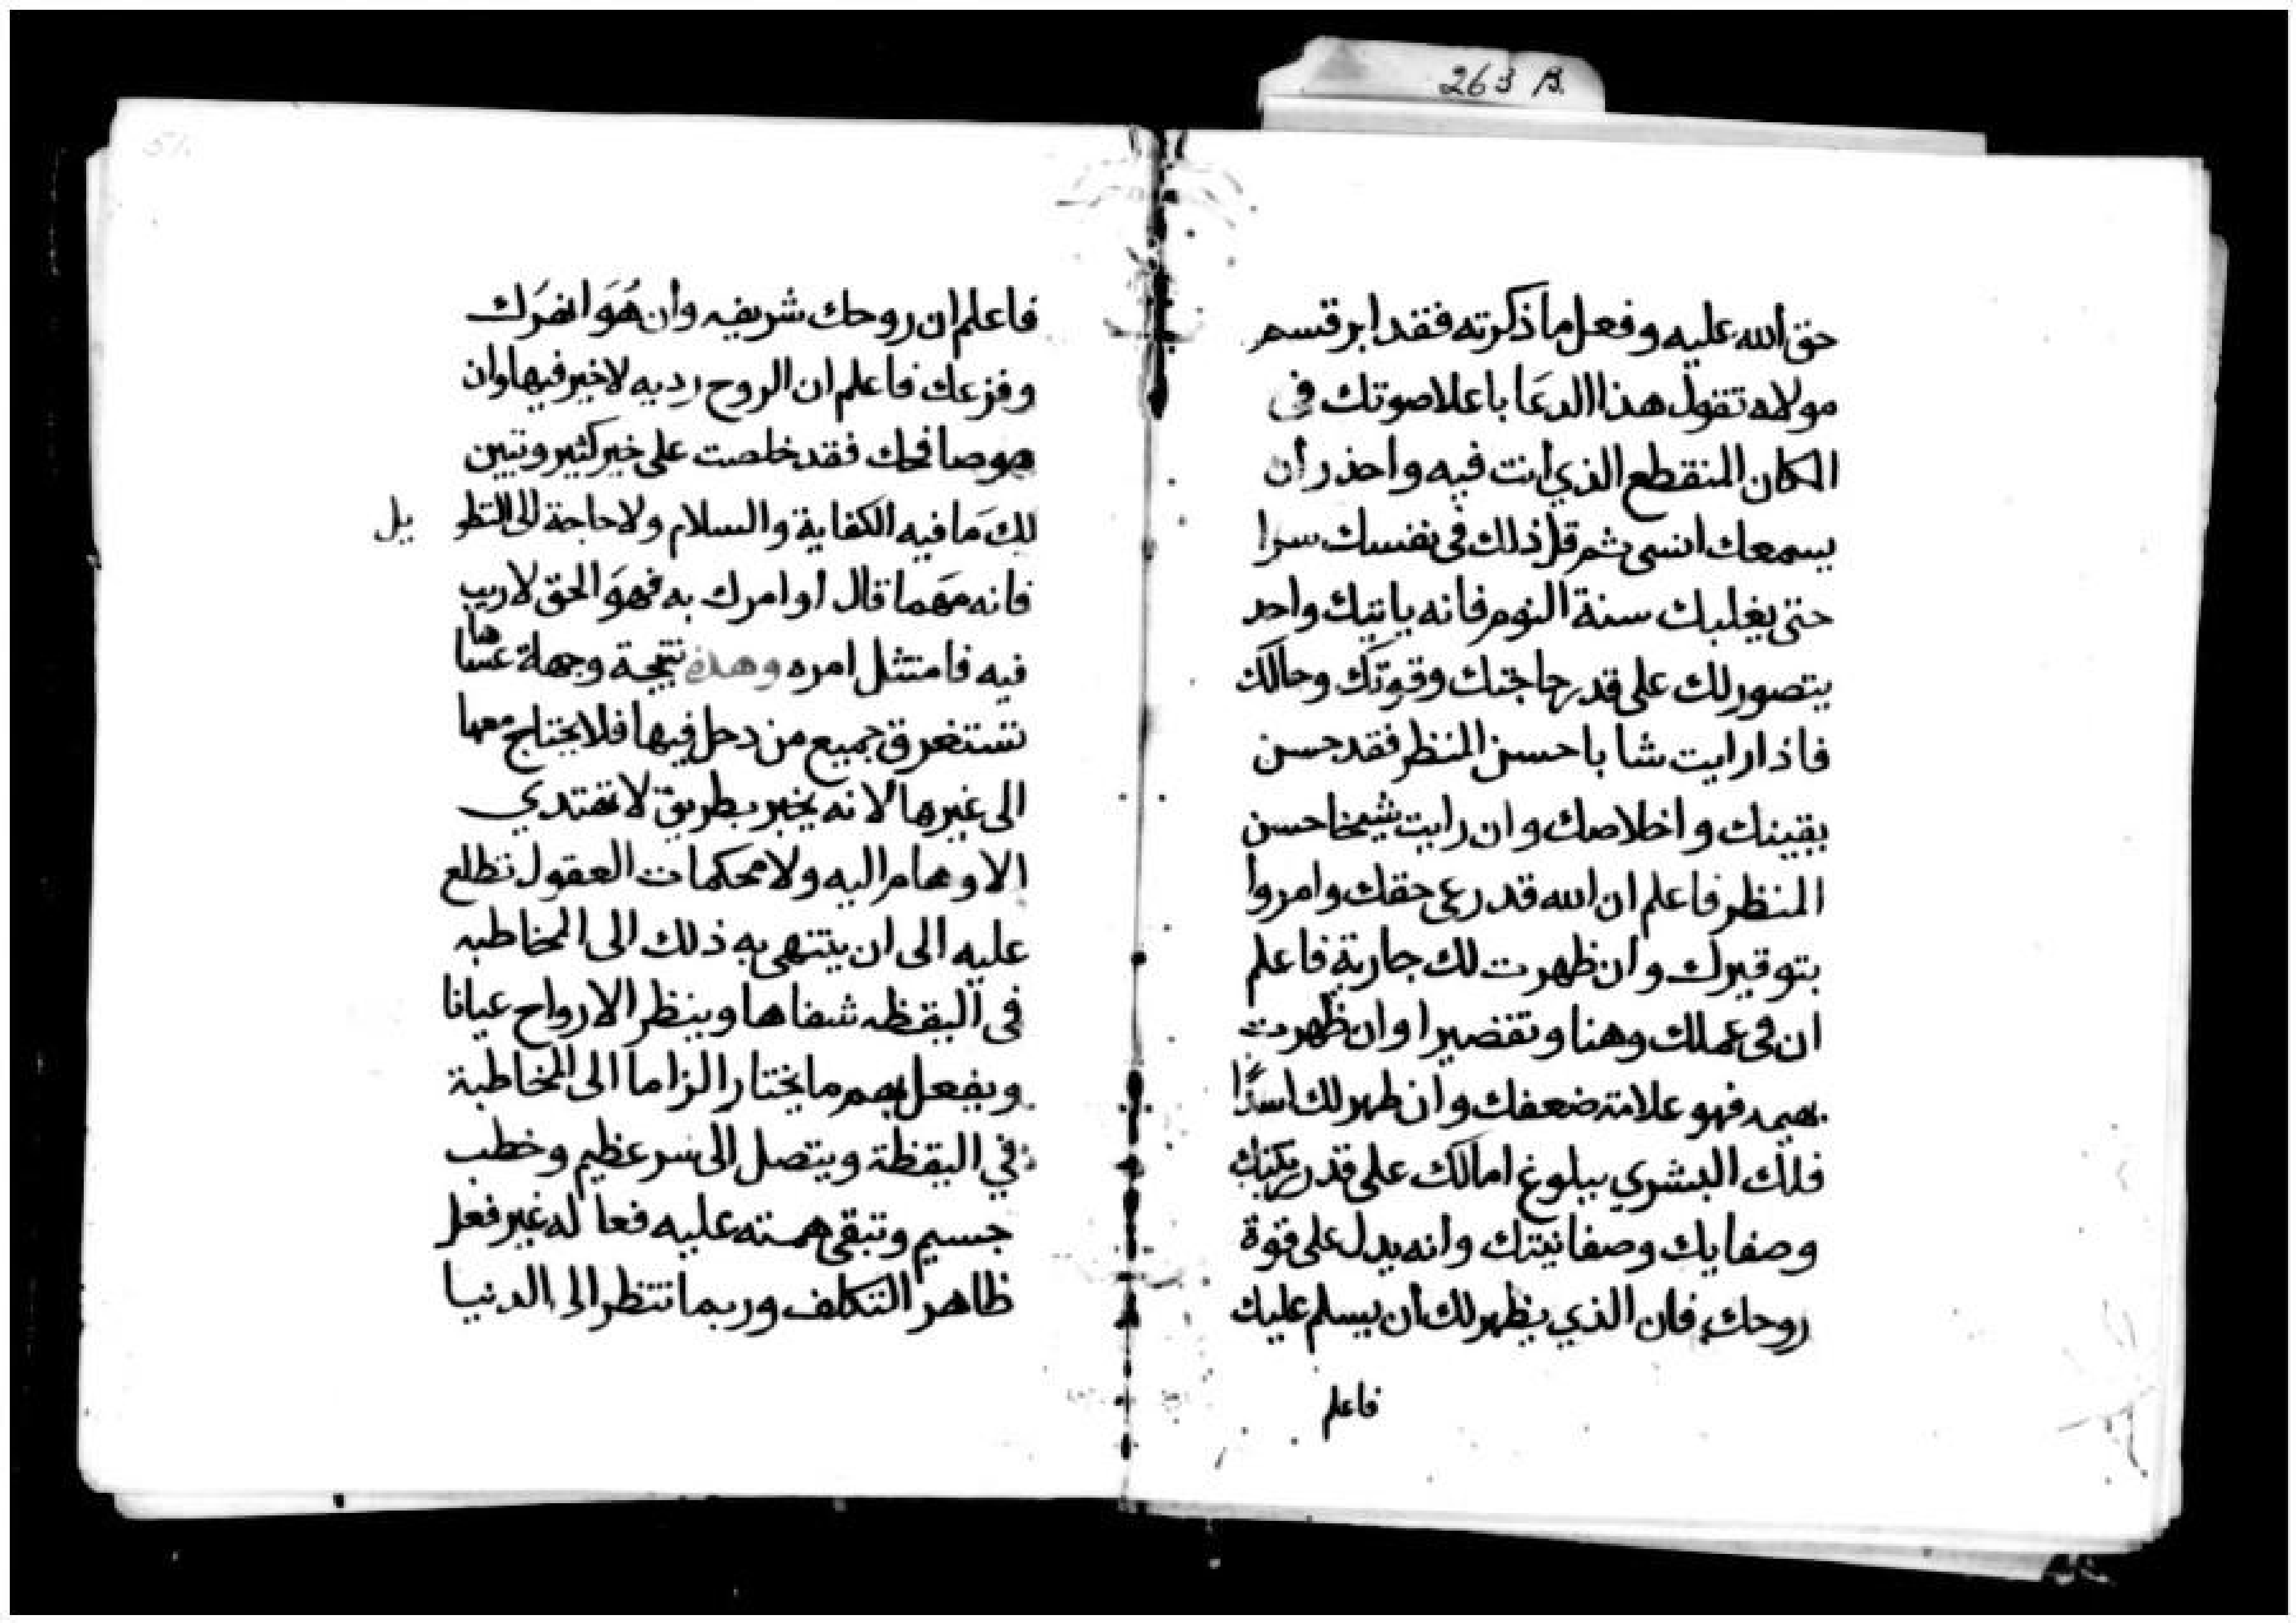 263 B.
حق الله عليه وفعل ما ذكرته فقد ابر قسم
مولاه تقول هذا الدعَا باعلا صوتك في
المكان المنقطع الذي أنت فيه واحذر أن
يسمعك انسى ثم قل ذلك في نفسك سرا
حتى يغلبك سنة النوم فانه ياتيك واحد
يتصور لك على قدر حاجتك وقوتك وحالك
فاذا رايت شابا حسن المنظر فقد حسن
يقينك واخلاصك وان رايت شيخا حسن
المنظر فاعلم ان الله قد رعى حقك وامروا
بتوقيرك وان ظهرت لك جارية فاعلم
ان في عملك وهنا وتقضيرا وان ظهرت
بهيمه فهو علامة ضعفك وان ظهر لك اسدًا
فلك البشري ببلوغ امالك على قدر
وصفايك وصفا نيتك وانه يدل على قوة
روحك فان الذي يظهر لك أن يسلم عليك
فاعلم
51.
فاعلم ان روحك شريفه وان هُوَ انهرَك
وفزعك فاعلم ان الروح رديه لا خير فيها وان
هو صافحك فقد خلصت على خير كثير وتبين
لك مَا فيه الكفاية والسلام ولا حاجة الى التطو يل
فانه مَهما قال او امرك به فهوَ الحق لا ريب
فيه فامتثل امره وهذه نتيجة وجهلة عشاها
تستغرق جميع من دخل فيها فلا يحتاج معها
الى غيرها لانه يخبر بطريق لا تهتدي
الاوهام اليه ولا محكمات العقول تطلع
عليه الى ان ينتهى به ذلك الى المخاطبه
فى اليقظه شفاها وينظر الارواح عيانا
ويفعل بهم ما يختار الزاما الى المخاطبة
في اليقظة ويتصل الى سر عظيم وخطب
جسيم وتبقى همته عليه فعاله غير فعل
ظاهر التكلف وربما تنظر الى الدنيا